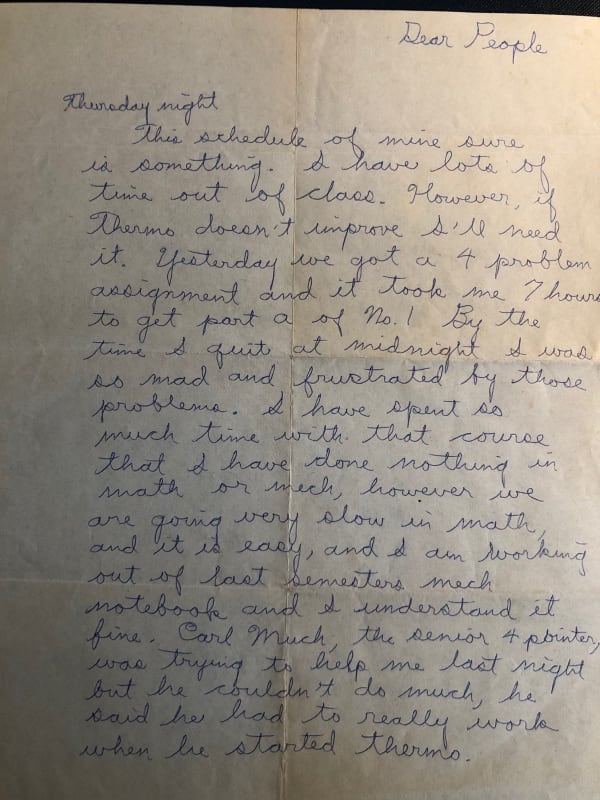 Dear People
Thursday night
This schedule of mine sure
is something. I have lots of
time out of class. However, if
Thermo doesn't improve I'll need
it. Yesterday we got a 4 problem
assignment and it took me 7 hours
to get part a of No. 1 By the
time I quit at midnight I was
so mad and frustrated by those
problems. I have spent so
much time with that course
that I have done nothing in
math or mech, however we
are going very slow in math,
and it is easy, and I am working
out of last semesters mech
notebook and I understand it
fine. Carl Much, the senior 4 pointer,
was trying to help me last night
but he couldn't do much, he
said he had to really work
when he started thermo.